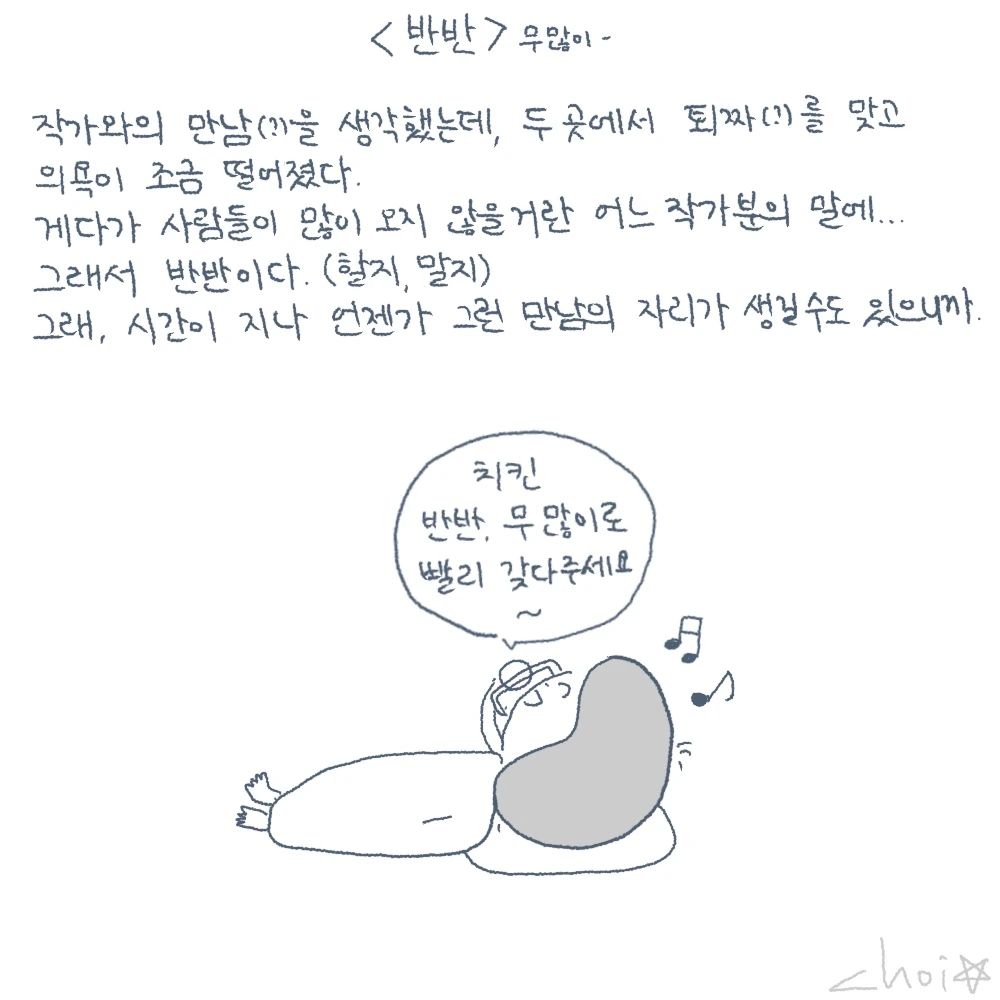 <반반> 무많이~
작가와의 만남(?)을 생각했는데, 두 곳에서 퇴짜(?)를 맞고
의욕이 조금 떨어졌다.
게다가 사람들이 많이 오지 않을거란 어느 작가분의 말에...
그래서 반반이다. (할지, 말지)
그래, 시간이 지나 언젠가 그런 만남의 자리가 생길수도 있으니까.
치킨
반반, 무 많이로
빨리 갖다주세요
~
choi